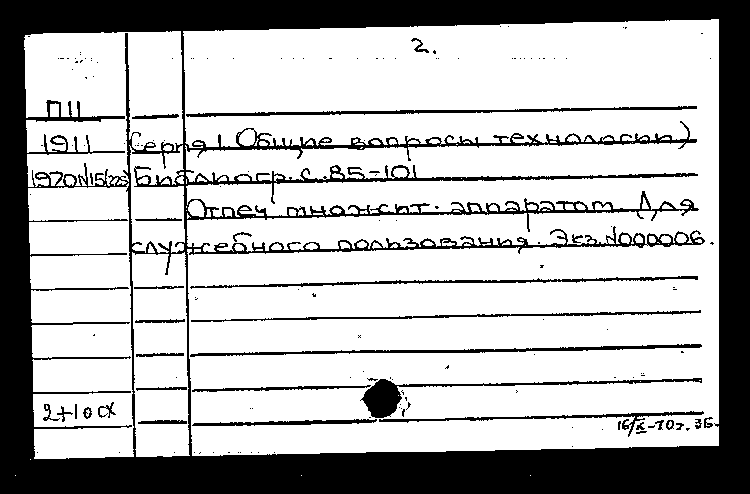 2.
П11
1911 Серия 1. Общие вопросы технологии)
1970 N15(225) Библиогр. с. 85-101
Отпеч множит. аппаратом. Для
служебного пользования. Экз. N000006.
2+10 сх
16/X-70г. ЗБ.